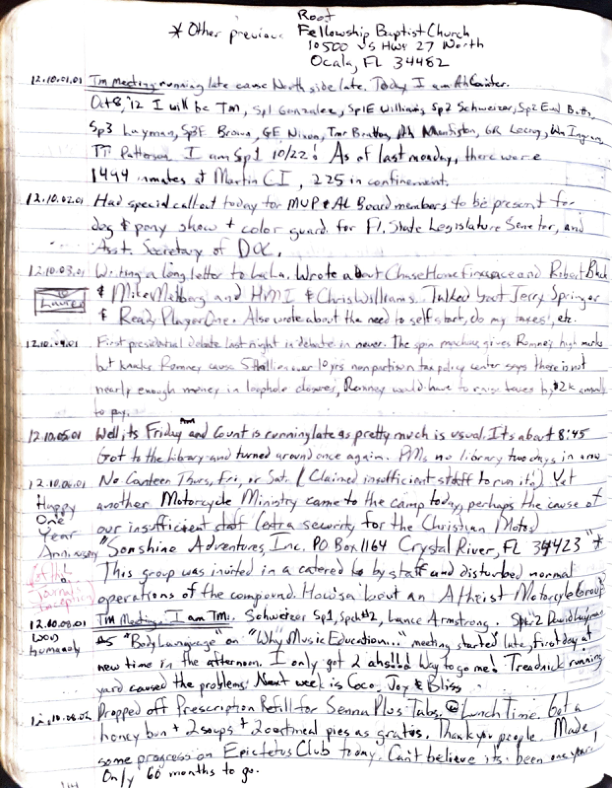 Root
* Other previous Fellowship Baptist Church
10500 US HWY 27 North
Ocala, FL 34482
12.10.01.01 Tm Meeting running late cause North side late. Today I am Ah Counter.
Oct 8, '12 I will be TM, Sp1 Gonzalez, Sp1E Williams, Sp2 Schweizer, Sp2E
Sp3 Layman, Sp3E Brown, GE Nixon, Tmr GR Leroy, Wm Ingram
TT Patterson I am Sp1 10/22! As of last monday, there were
1444 inmates at Martin CI, 225 in confinement.
12.10.02.01 Had special callout today for MVP & AL Board members to be present for
dog & pony show + color guard for Fl. State Legislature Senator, and
Asst. Secretary of DOC.
12.10.03.01 Writing a long letter to LaLa. Wrote about Chase Home Finance and Robert
TO Laura & Mike and HVMI & Chris Williams. Talked bout Jerry Springer
& Ready Player One. Also wrote about the need to self start, do my taxes!, etc.
12.10.04.01 First presidential debate last night in debate in never. The spin machine gives Romney high marks
but knocks Romney cause 5 trillion over 10 yrs non partisan tax policy center says there is not
nearly enough money in loophole closures, Romney would have to raise taxes by $2k
to pay.
12.10.05.01 Well, its Friday PM and Count is running late as pretty much is usual. It's about 8:45
Got to the Library and turned around once again. PMs no library two days in a row
12.10.06.01 No Canteen Thurs, Fri, or Sat. (Claimed insufficient staff to run it) Yet
Happy another Motorcycle Ministry came to the camp today, perhaps the cause of
One our insufficient staff (extra security for the Christian Motos)
Year
Anniversary "Sonshine Adventures, Inc. PO Box 1164 Crystal River, FL 34423" *
of the This group was invited in a catered to by staff and disturbed normal
Journal operations of the compound. How is bout an Atheist Motorcycle Group?
12.10.08.01 Tm Meeting. I am TM. Schweizer Sp1, Lance Armstrong. Sp 2 David Layman
"Body Language" on "Why Music Education..." meeting started late, first day at
humanly new time in the afternoon. I only got 2 ahs!!! Way to go me! Treadnick running
yard caused the problems. Next week is Coco, Joy & Bliss
12.10.08.02 Dropped off Prescription Refill for Senna Plus Tabs. @ Lunch Time. Got a
honey bun + 2 soups + 2 oatmeal pies as gratis. Thank you people. Made
some progress on Epictetus Club today. Can't believe its been one year!
Only 60 months to go.